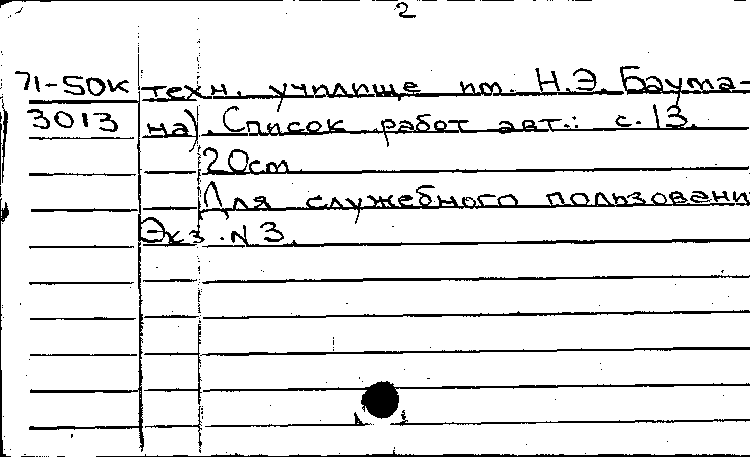 2
71-50к техн. училище им. Н.Э. Баума-
3013 на). Список работ авт.: с. 13.
20см
Для служебного пользовани
Экз. N 3.